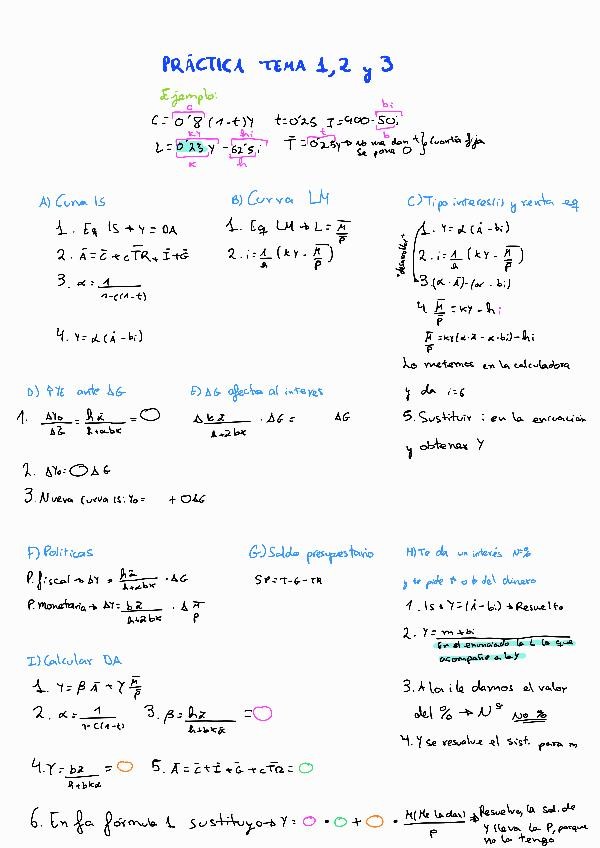 PRÁCTICA TEMA 1, 2 y 3
Ejemplo:
c
bi
C = 0'8 (1-t)Y t=0'25 I = 900-50i
b
kY hi t
L = 0'25Y - 62'5i T̄ = 0'25Y → no me dan t, cuantía fija
se pone 0
k h
A) Curva IS
1. Eq IS → Y = DA
2. Ā = C̄ + cT̄R + Ī + Ḡ
3. α = 1 / 1-c(1-t)
4. Y = α(Ā - bi)
B) Curva LM
1. Eq LM → L = M̄/P̄
2. i = 1/h (kY - M̄/P̄)
C) Tipo interes(i) y renta eq
1. Y = α(Ā - bi)
2. i = 1/h (kY - M̄/P̄)
3. (α · Ā) - (α · bi)
4. M̄/P̄ = kY - hi
M̄/P̄ = kY(α·Ā - α·bi) - hi
Lo metemos en la calculadora
y da i=6
5. Sustituir i en la ecuación
y obtener Y
D) PYE ante ΔG
1. ΔY0/ΔG = hα / h+αbk = O
2. ΔY0 = O ΔG
3. Nueva curva IS: Y0 = + OΔG
E) ΔG afecta al interes
Δ kα / h+αbk · ΔG = ΔG
F) Políticas
P. fiscal → ΔY = hα / h+αbk · ΔG
P. monetaria → ΔY = bα / h+αbk · Δ M̄/P
G) Saldo presupuestario
SP = T-G-TR
H) Te da un interés Nº%
y te pide + o b del dinero
1. IS → Y = (Ā - bi) → Resuelto
2. Y = m + bi
En el enunciado la L lo que
acompañe a la Y
3. A la i le damos el valor
del % → Nº No %
4. Y se resuelve el sist. para m
I) Calcular DA
1. Y = βĀ + γ M̄/P
2. α = 1 / 1-c(1-t) 3. β = hα / h+bkα = O
4. γ = bα / h+bkα = O 5. Ā = C̄ + Ī + Ḡ + cT̄R = O
6. En la fórmula 1 sustituyo → Y = O · O + O · M(Me la dan)/P → Resuelvo, la sol. de
Y lleva la P, porque
no la tengo